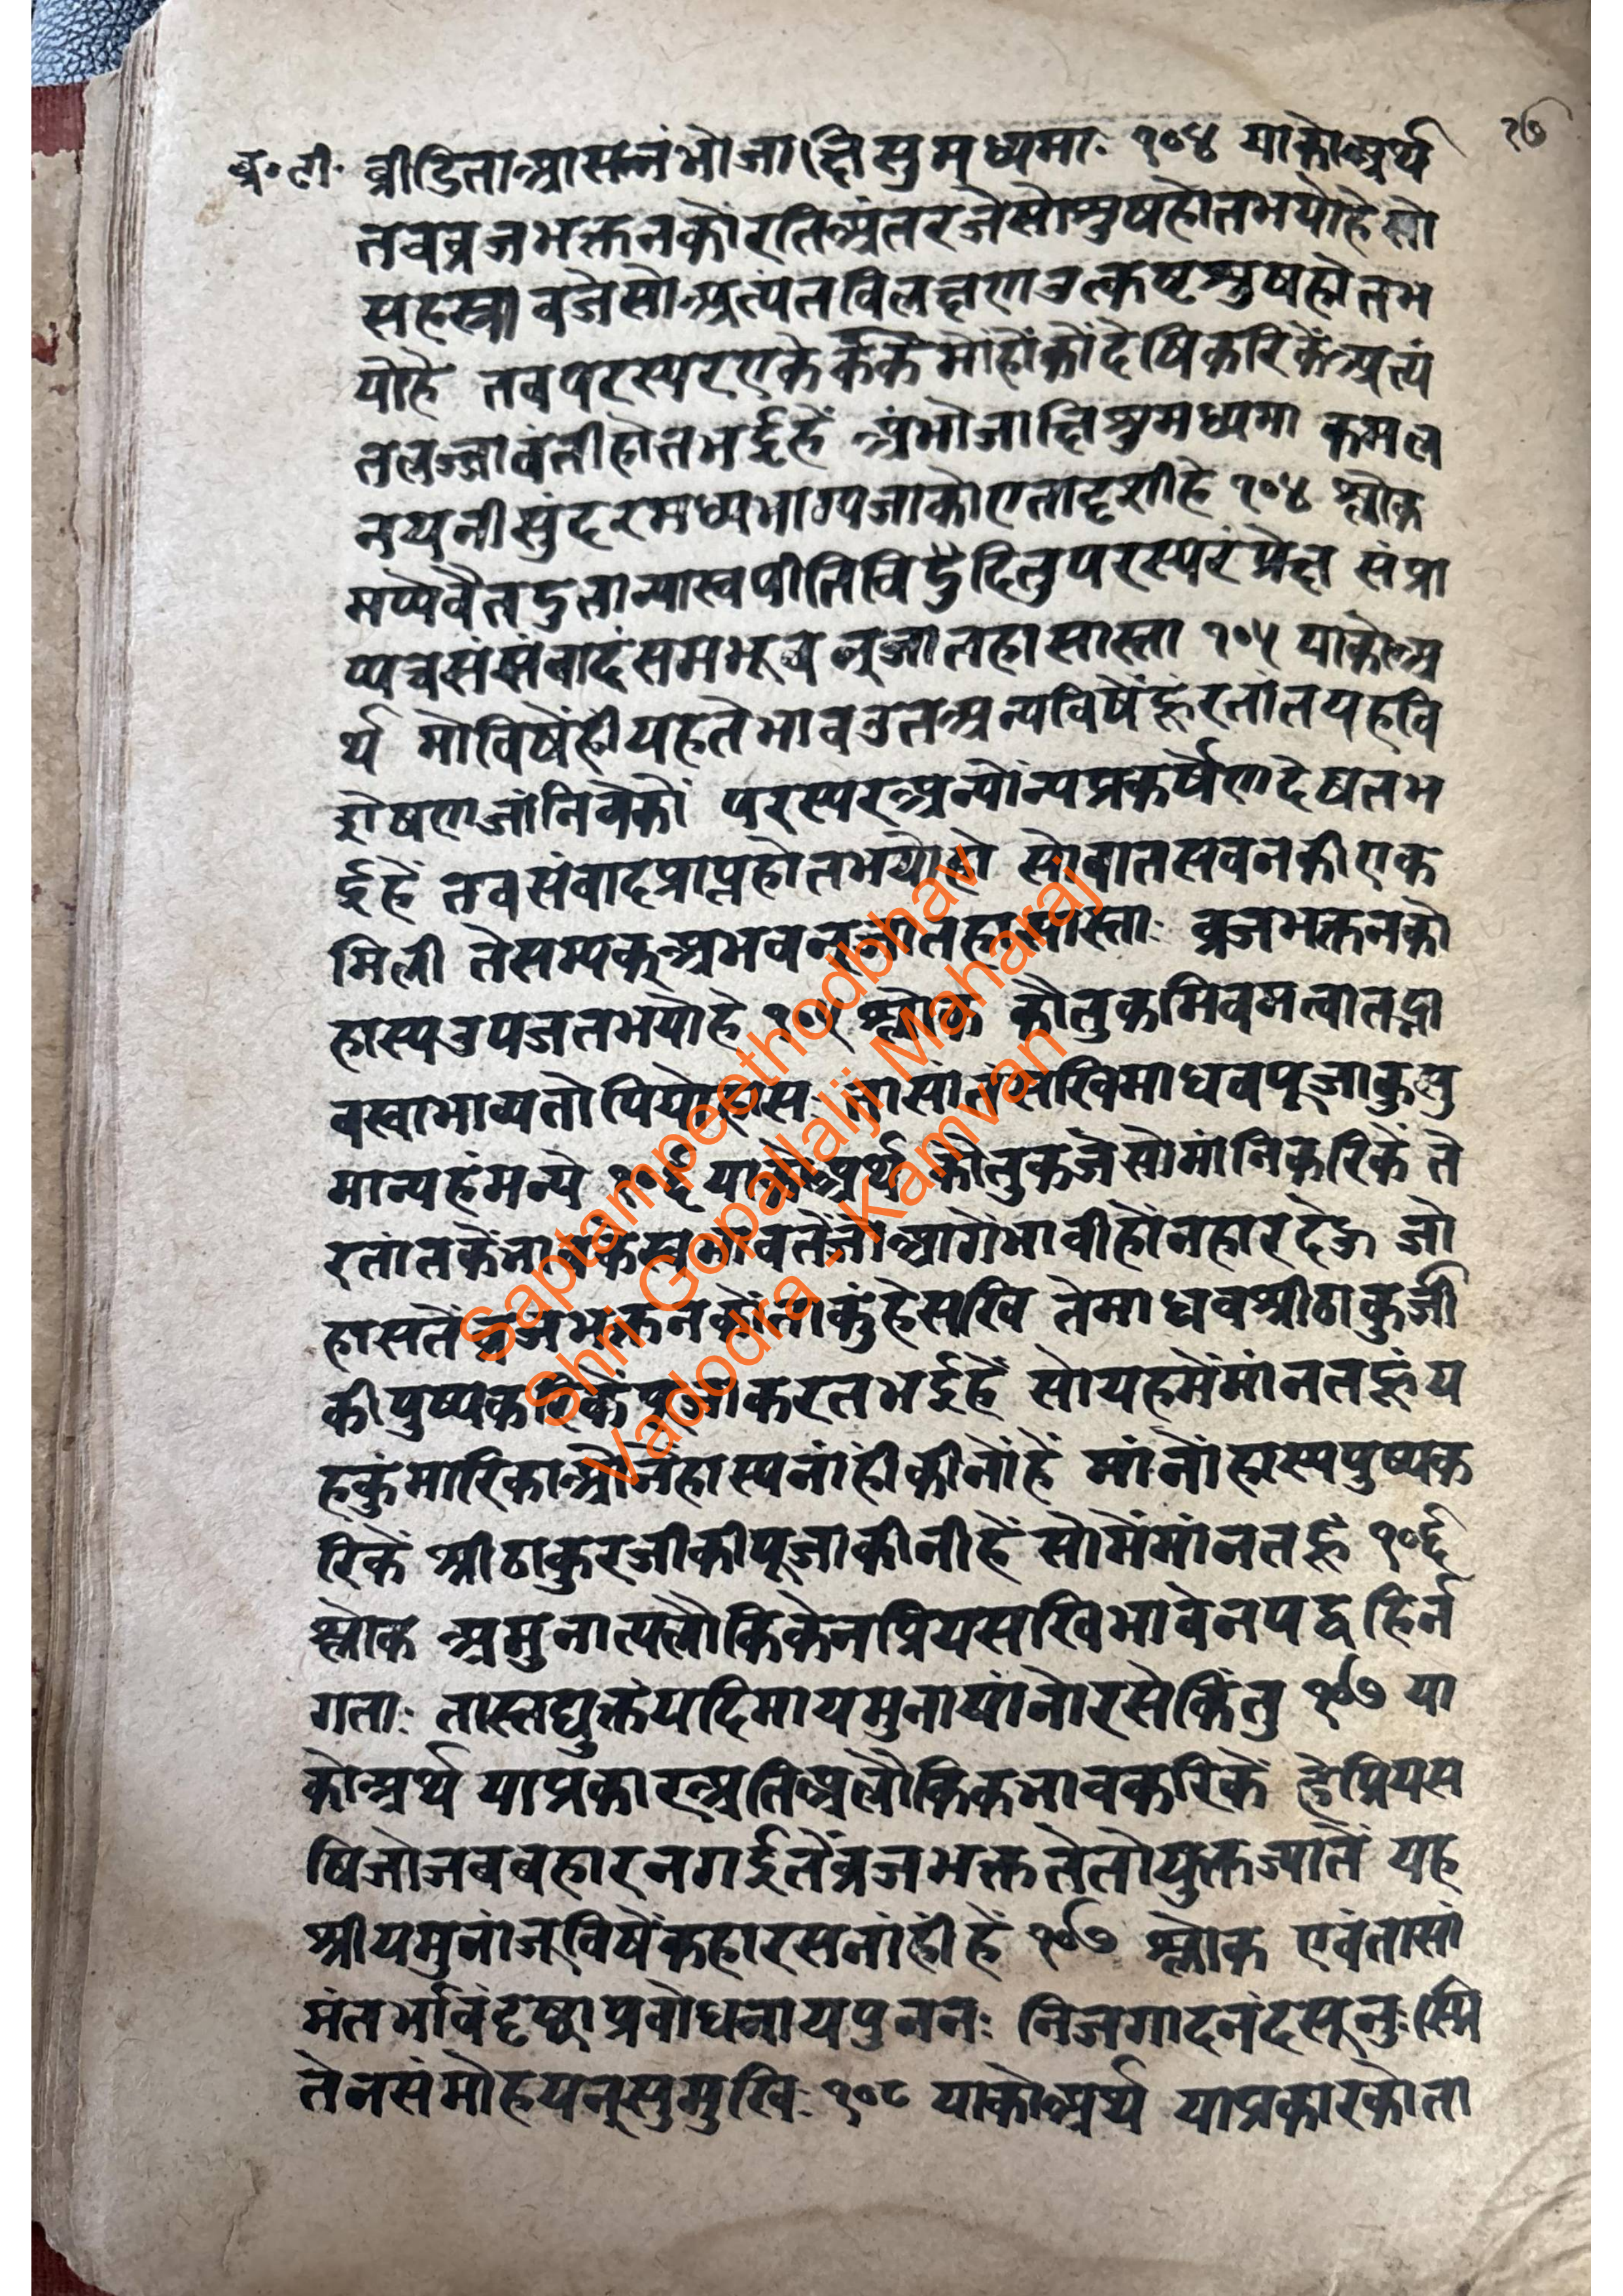 व्र॰टी॰ व्रीडिताआसन्नंभोजाक्षिसुमध्यमाः १०४ याकोअर्थ २७
तवव्रजभक्तनकोंरतिअंतरजैसोसुषहोतभयोहैसो
सहस्त्रावजैसोअत्यंतविलक्षणउत्कृष्टसुषहोतभ
योहै तवपरस्परएकैकके मोंहोंकोंदेषिकरिकेंअत्यं
तलज्जावंतीहोतभईहें अंभोजाक्षिसुमध्यमा कमल
नयनीसुंदरमध्यभाग्यजाकोएतादृशीहे १०४ श्लोक
मय्येवैतदुतान्यास्वपीतिविदुदितुपरस्परंप्रेक्ष संप्रा
प्यचसंसंवादंसमभूवनूजातहासास्ता १०५ याकोअ
र्थ मोविषेंहीयहतेभावउतअन्यविषेंहूंरतांतयहवि
शेषणजांनिवेकों परस्परअन्योंन्यप्रकर्षेणदेषतभ
ईहें तवसंवादप्राप्तहोतभयोहो सोवातसवनकीएक
मिली तेसम्यक्अभवनूजातहास्यास्ताः व्रजभक्तनको
हास्यउपजतभयोहे १०५ श्लोक कौतुकमिवमत्वातद्भा
वस्वाभाव्यतोपियोहासः तासांतंसखिमाधवपूजाकुसु
मान्यहंमन्ये १०६ याकोअर्थ कौतुकजैसोमांनिकरिकें ते
रतांतकेंभावकेस्वभावतेंजोआगेंभावीहोंनहारदेऊ जो
हासतेंव्रजभक्तनकोंताकुंहेसखि तेमाधवश्रीठाकुरजी
कीपुष्पकरिकेंपूजाकरतभईहें सोयहमेंमांनतहूंय
हकुंमारिकाओंनेंहास्यनांहीकीनोंहें मांनोंहास्यपुष्पक
रिकें श्रीठाकुरजीकीपूजाकीनीहें सोमेंमांनतहूं १०६
श्लोक अमुनात्यलौकिकेनप्रियसखिभावेनपद्वहिर्न
गताः तास्तद्युक्तंयदिमायमुनायांनोरसेकिंतु १०७ या
कोअर्थ याप्रकारअतिअलौकिकभावकरिकें हेप्रियस
षिजोजबबहारनगईतेंव्रजभक्ततेतोयुक्तज्यातें यह
श्रीयमुनांजूविषेंकहारसनांहीहें १०७ श्लोक एवंतासां
मंतर्भावंदृष्ट्वाप्रवोधनायपुननः निजगादनंदसूनुःस्मि
तेनसंमोहयन्सुमुखिः १०८ याकोअर्थ याप्रकारकोता
Saptampeethodbhav
Shri Gopallalji Maharaj
Vadodra - Kamvan